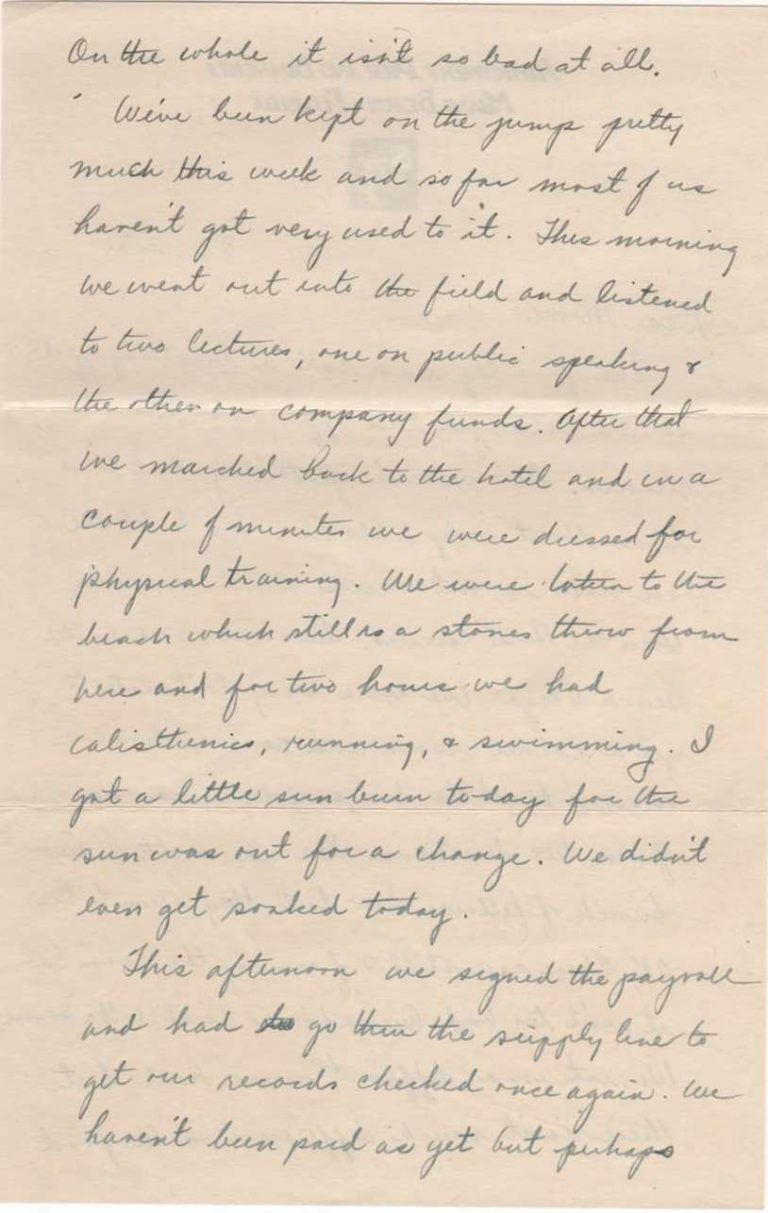 On the whole it isn't so bad at all.
We've been kept on the jump pretty
much this week and so far most of us
haven't got very used to it. This morning
we went out into the field and listened
to two lectures, one on public speaking &
the other on company funds. After that
we marched back to the hotel and in a
couple of minutes we were dressed for
physical training. We were taken to the
beach which still is a stones throw from
here and for two hours we had
calisthenics, running, & swimming. I
got a little sun burn to-day for the
sun was out for a change. We didn't
even get soaked today.
This afternoon we signed the payroll
and had to go thru the supply line to
get our records checked once again. We
haven't been paid as yet but perhaps